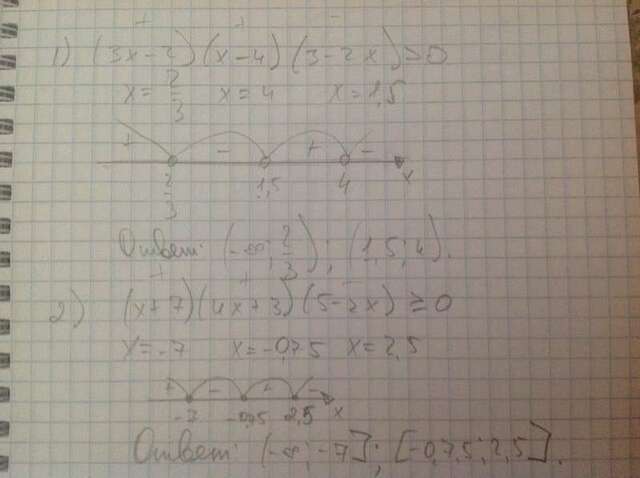 + + −
1) (3x−2)(x−4)(3−2x)>0
x=2/3 x=4 x=1,5
+ − + −
2/3 1,5 4 x
Ответ: (−∞; 2/3); (1,5; 4).
+ + −
2) (x+7)(4x+3)(5−2x)≥0
x=−7 x=−0,75 x=2,5
+ − + −
−7 −0,75 2,5 x
Ответ: (−∞; −7]; [−0,75; 2,5].